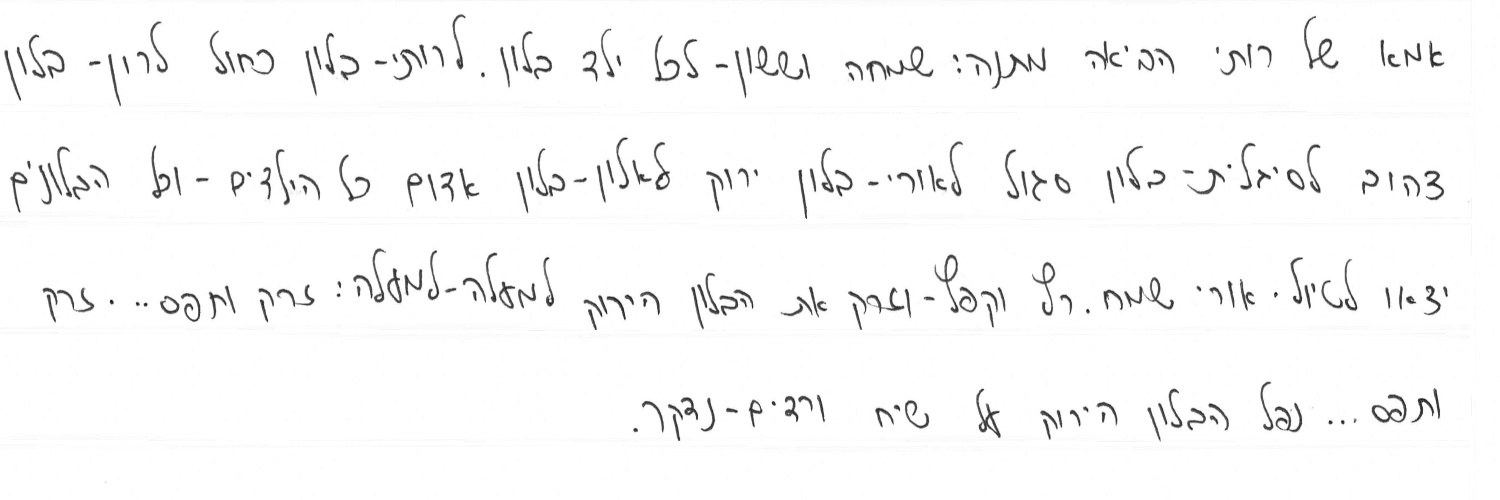 אמא של רותי הביאה מתנה: שמחה וששון- לכל ילד בלון. לרותי- בלון כחול לרון- בלון
צהוב לסיגלית- בלון סגול לאורי- בלון ירוק לאלון- בלון אדום כל הילדים - וכל הבלונים
יצאו לטיול. אורי שמח. רץ וקפץ- וזרק את הבלון הירוק למעלה-למעלה: זרק ותפס... זרק
ותפס... נפל הבלון הירוק על שיח ורדים-נדקר.